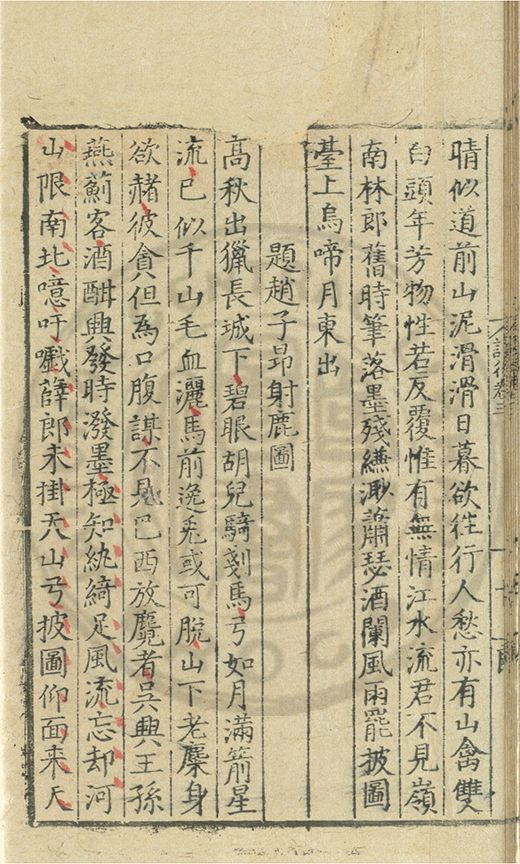 晴似道前山泥滑滑日暮欲徃行人愁亦有山禽雙
白頭年芳物性若反覆惟有無情江水流君不見嶺
南林郎舊時筆落墨殘縑渺蕭瑟酒闌風雨罷披圖
臺上烏啼月東出
題趙子昻射鹿圖
高秋出獵長城下碧眼胡兒騎剗馬弓如月滿箭星
流已似千山毛血灑馬前逸兎或可脫山下老麋身
欲赭彼貪但爲口腹謀不見巴西放麑者吳興王孫
燕薊客酒酣興發時潑墨極知紈綺足風流忘却河
山限南北噫吁戱薛郎未掛天山弓披圖仰面来天